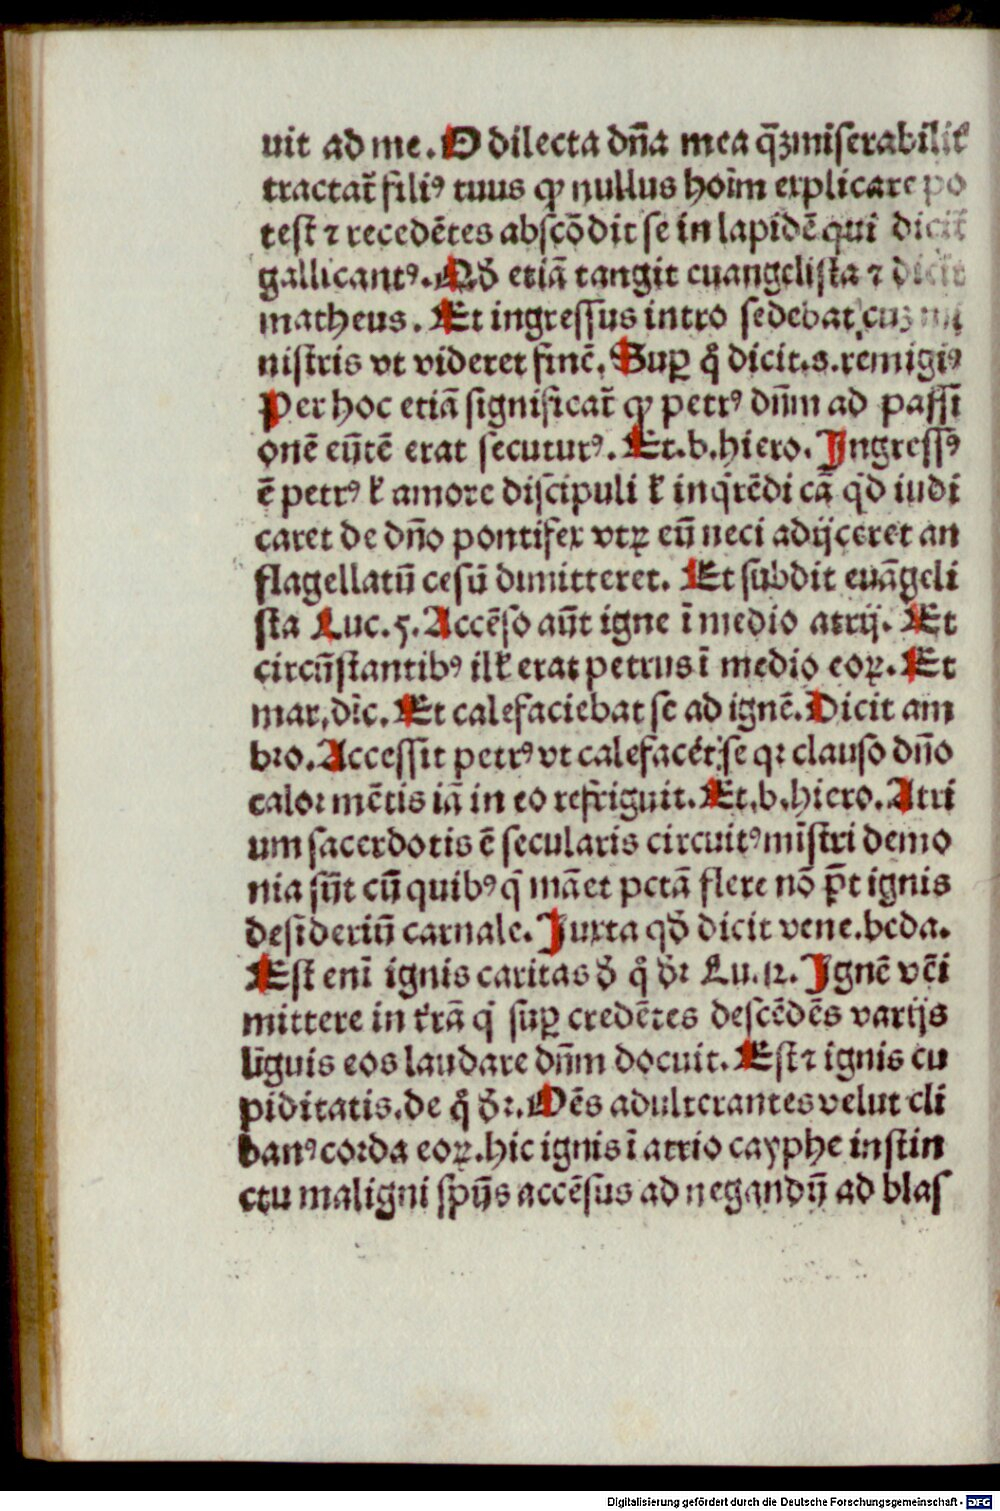 uit ad me. O dilecta dña mea q̄ꝫmiserabilit᷑
tractat᷑ filiꝰ tuus ꝙ nullus hoīm explicare po
test ⁊ recedētes abscōdit se in lapidē qui dicit᷑
gallicantꝰ. Qḋ etiā tangit euangelista ⁊ dicit
matheus. Et ingressus intro sedebat cuꝫ mi
nistris vt videret finē. Suꝑ q̊ dicit.s.remigiꝰ
Per hoc etiā significat᷑ ꝙ petrꝰ dñm ad passi
onē eūtē erat secuturꝰ. Et.b.hiero. Ingressꝰ
ē petrꝰ ł amore discipuli ł inq̇rēdi cā qḋ iudi
caret de dño pontifex vtꝝ eū neci adijceret an
flagellatū cesū dimitteret. Et subdit euāgeli
sta Luc.5. Accēso aūt igne ī medio atrij. Et
circūstantibꝰ illꝭ erat petrus ī medio eoꝝ. Et
mar.dīc. Et calefaciebat se ad ignē. Dicit am
bro. Accessit petrꝰ vt calefacēt se qꝛ clauso dño
calor mētis iā in eo refriguit. Et.b.hiero. Atri
um sacerdotis ē secularis circuitꝰ mīstri demo
nia sūt cū quibꝰ q̇ māet pctā flere nō p̄t ignis
desideriū carnale. Juxta qḋ dicit vene.beda.
Est enī ignis caritas ḋ q̊ ḋꝛ Lu.12. Ignē vēi
mittere in t᷑rā q̇ suꝑ credētes descēdēs varijs
līguis eos laudare dñm docuit. Est ⁊ ignis cu
piditatis.de q̊ ḋꝛ. Oēs adulterantes velut cli
banꝰ corda eoꝝ.hic ignis ī atrio cayphe instin
ctu maligni sp̄ūs accēsus ad negandū ad blas
Digitalisierung gefördert durch die Deutsche Forschungsgemeinschaft - DFG